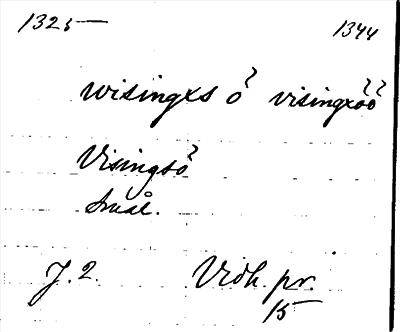 1325— 1344
wisingxs ö visingxöö
Visingsö
Smål.
J. 2. Vidh. pr.
15